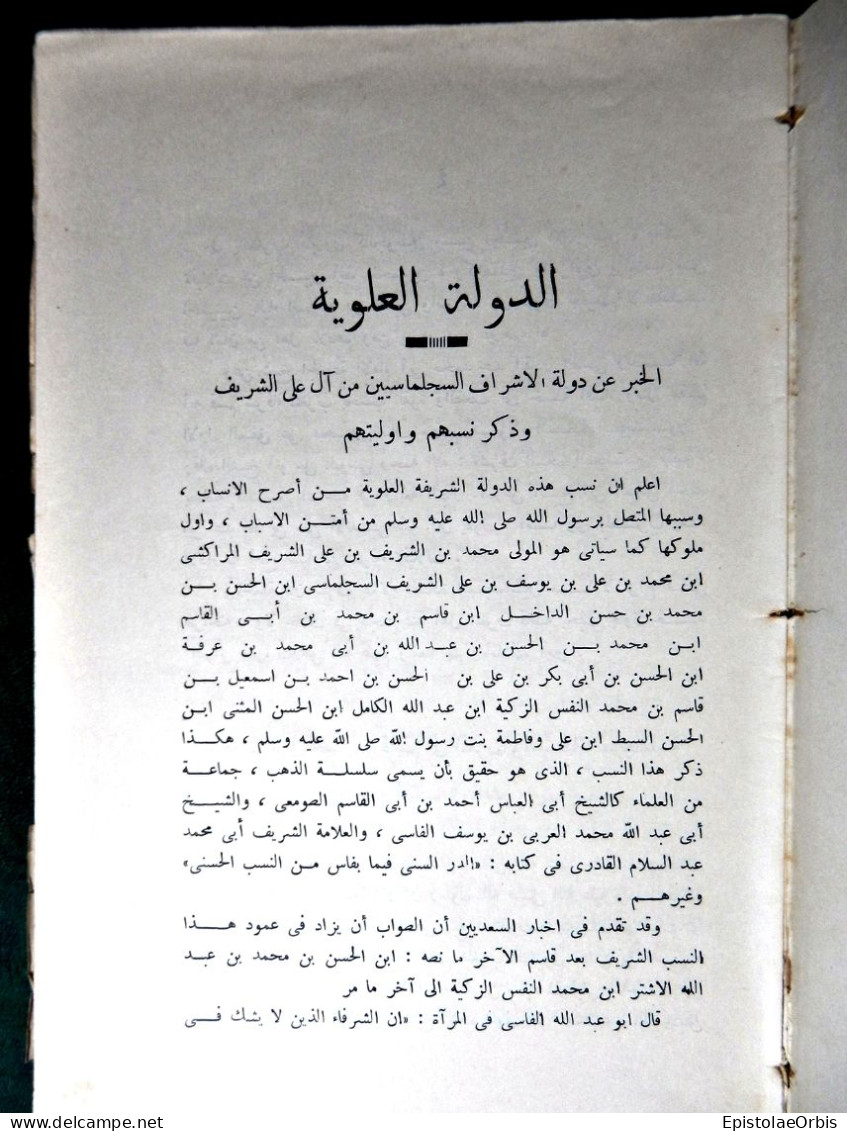 الدولة العلوية
الخبر عن دولة الاشراف السجلماسيين من آل على الشريف
وذكر نسبهم واوليتهم
اعلم ان نسب هذه الدولة الشريفة العلوية مــن أصرح الانساب ،
وسببها المتصل برسول الله صلى الله عليه وسلم من أمتـن الاسباب ، واول
ملوكها كما سياتى هو المولى محمد بن الشريف بن على الشريف المراكشى
ابن محمد بن على بن يوسف بن على الشريف السجلماسى ابن الحسن بــن
محمد بن حسن الداخــل ابن قاسم بن محمد بن أبــى القاسم
ابــن محمد بــن الحسن بن عبد الله بن أبى محمد بن عرفة
ابن الحسن بن أبى بكر بن على بن الحسن بن احمد بــن اسمعيل بــن
قاسم بن محمد النفس الزكية ابن عبد الله الكامل ابن الحسن المثنى ابــن
الحسن السبط ابن على وفاطمة بنت رسول الله صلى الله عليه وسلم ، هكــذا
ذكر هذا النسب ، الذى هو حقيق بأن يسمى سلسلــة الذهب ، جماعــة
من العلماء كالشيخ أبى العباس أحمد بن أبى القاسم الصومعى ، والشيــخ
أبى عبد الله محمد العربى بن يوسف الفاسى ، والعلامة الشريف أبى محمد
عبد السلام القادرى فى كتابه : «الدر السنى فيما بفاس مــن النسب الحسنى»
وغيرهــم .
وقد تقدم فى اخبار السعديين أن الصواب أن يزاد فى عمود هــذا
النسب الشريف بعد قاسم الآخر ما نصه : ابن الحسن بن محمد بن عبــد
الله الاشتر ابن محمد النفس الزكية الى آخر ما مر
قال ابو عبد الله الفاسى فى المرآة : «ان الشرفاء الذين لا يشك فــى
EpistolaeOrbis